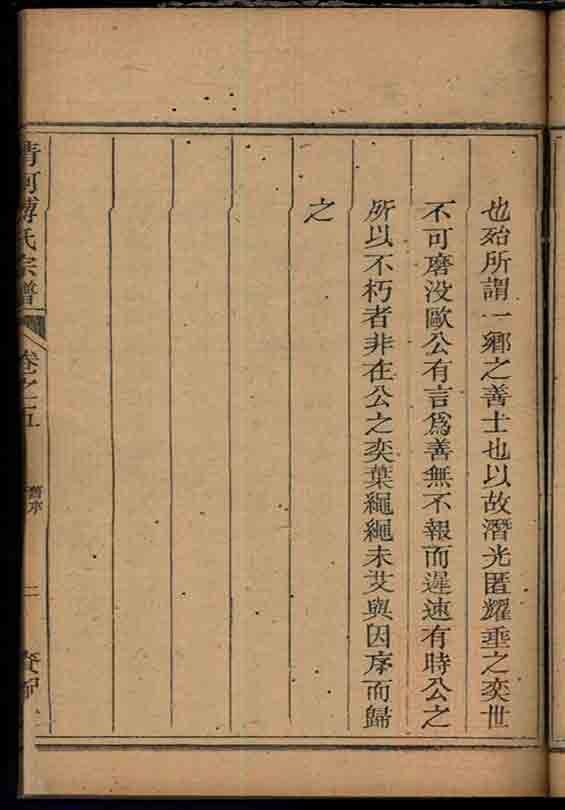 也殆所謂一鄉之善士也以故潛光匿耀垂之奕世
不可磨没歐公有言爲善無不報而遲速有時公之
所以不朽者非在公之奕葉繩繩未艾與因序而歸
之
清河傅氏宗譜
卷之五